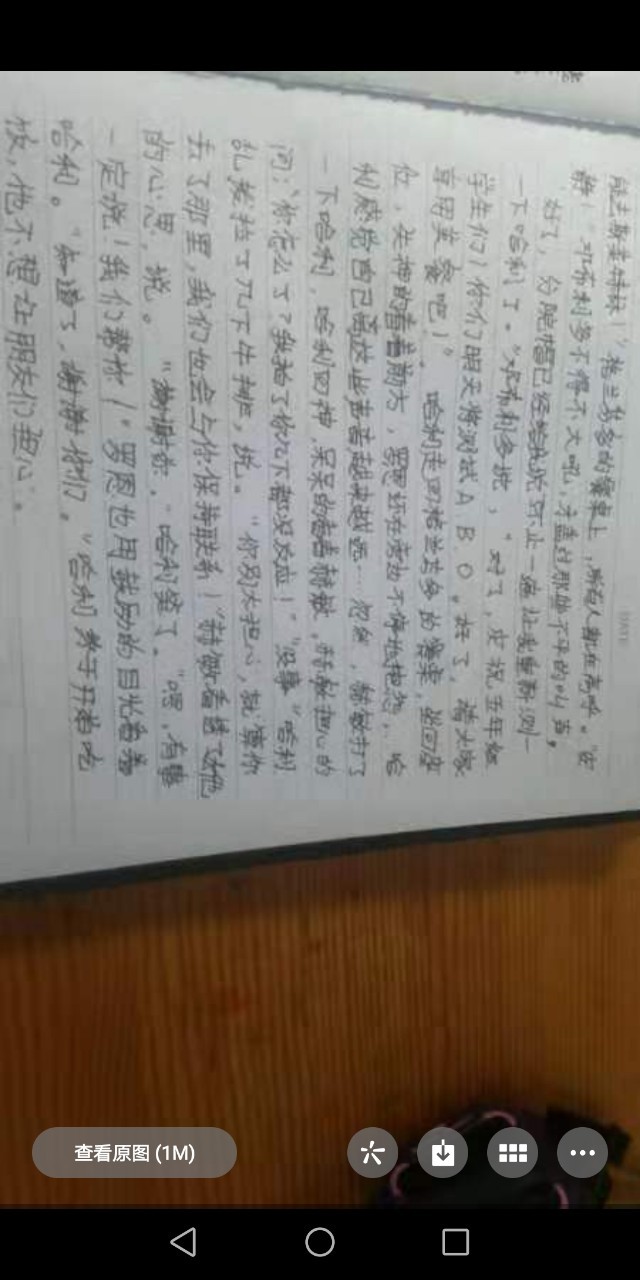 能去斯莱特林！”格兰芬多的餐桌上，所有人都在高呼。“安
静！”邓布利多不得不大吼，才盖过那愤愤不平的叫声，
“好了，分院帽已经
一下哈利了。”邓布利多说，“对了，庆祝五年级
学生们！你们明天将测试A B O。好了，请大家
享用美餐吧！” 哈利走回格兰芬多的餐桌，坐回座
位，失神的看着前方，罗恩还在旁边不停地抱怨，哈
利感觉自己离这些声音越来越远…忽然，赫敏打了
一下哈利，哈利回神，呆呆的看着赫敏，赫敏担心的
问：“你怎么了？我拍了你几下都没反应！”“没事”哈利
乱拨拉了几下牛排，说。“你别太担心，就算你
去了那里，我们也会与你保持联系！”赫敏看透了他
的心思，说。“谢谢你，”哈利笑了。“嗯，有事
一定说！我们帮你！”罗恩也用鼓励的目光看着
哈利。“知道了，谢谢你们。”哈利终于开始吃
饭，他不想让朋友们担心。
查看原图 (1M)